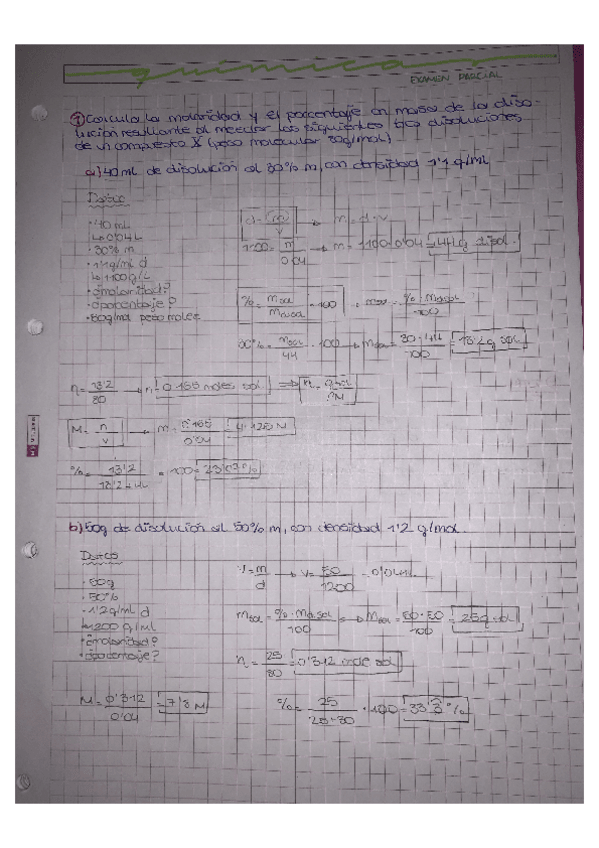 química
EXAMEN PARCIAL
① Calcula la molaridad y el porcentaje en masa de la diso-
lución resultante al mezclar las siguientes tres disoluciones
de un compuesto X (peso molecular 80g/mol)
a) 40 mL de disolución al 30% m, con densidad 1'1 g/mL
Datos
· 40 mL
↳ 0'04 L
· 30% m
· 1'1 g/mL d
↳ 1100 g/L
· ¿molaridad?
· ¿porcentaje?
· 80g/mol peso molec
d = m/v → m = d · v
1100 = m/0'04 → m = 1100·0'04 = 44 g disol.
% = msol/mdisol · 100 → msol = % · mdisol/100
30% = msol/44 · 100 → msol = 30·44/100 = 13'2 g sol
n = 13'2/80 → n = 0'165 moles sol. ⇒ n = g sol/PM
M = n/v → m = 0'165/0'04 = 4'125 M
% = 13'2/13'2+44 · 100 = 23'07%
b) 50g de disolución al 50% m, con densidad 1'2 g/mol.
Datos
· 50g
· 50%
· 1'2g/mL d
↳ 1200 g/mL
· ¿molaridad?
· ¿porcentaje?
V = m/d → v = 50/1200 = 0'04 L
msol = % · mdisol/100 → msol = 50·50/100 = 25g sol
n = 25/80 = 0'312 mole sol
M = 0'312/0'04 = 7'8 M
% = 25/25+50 · 100 = 33'3%